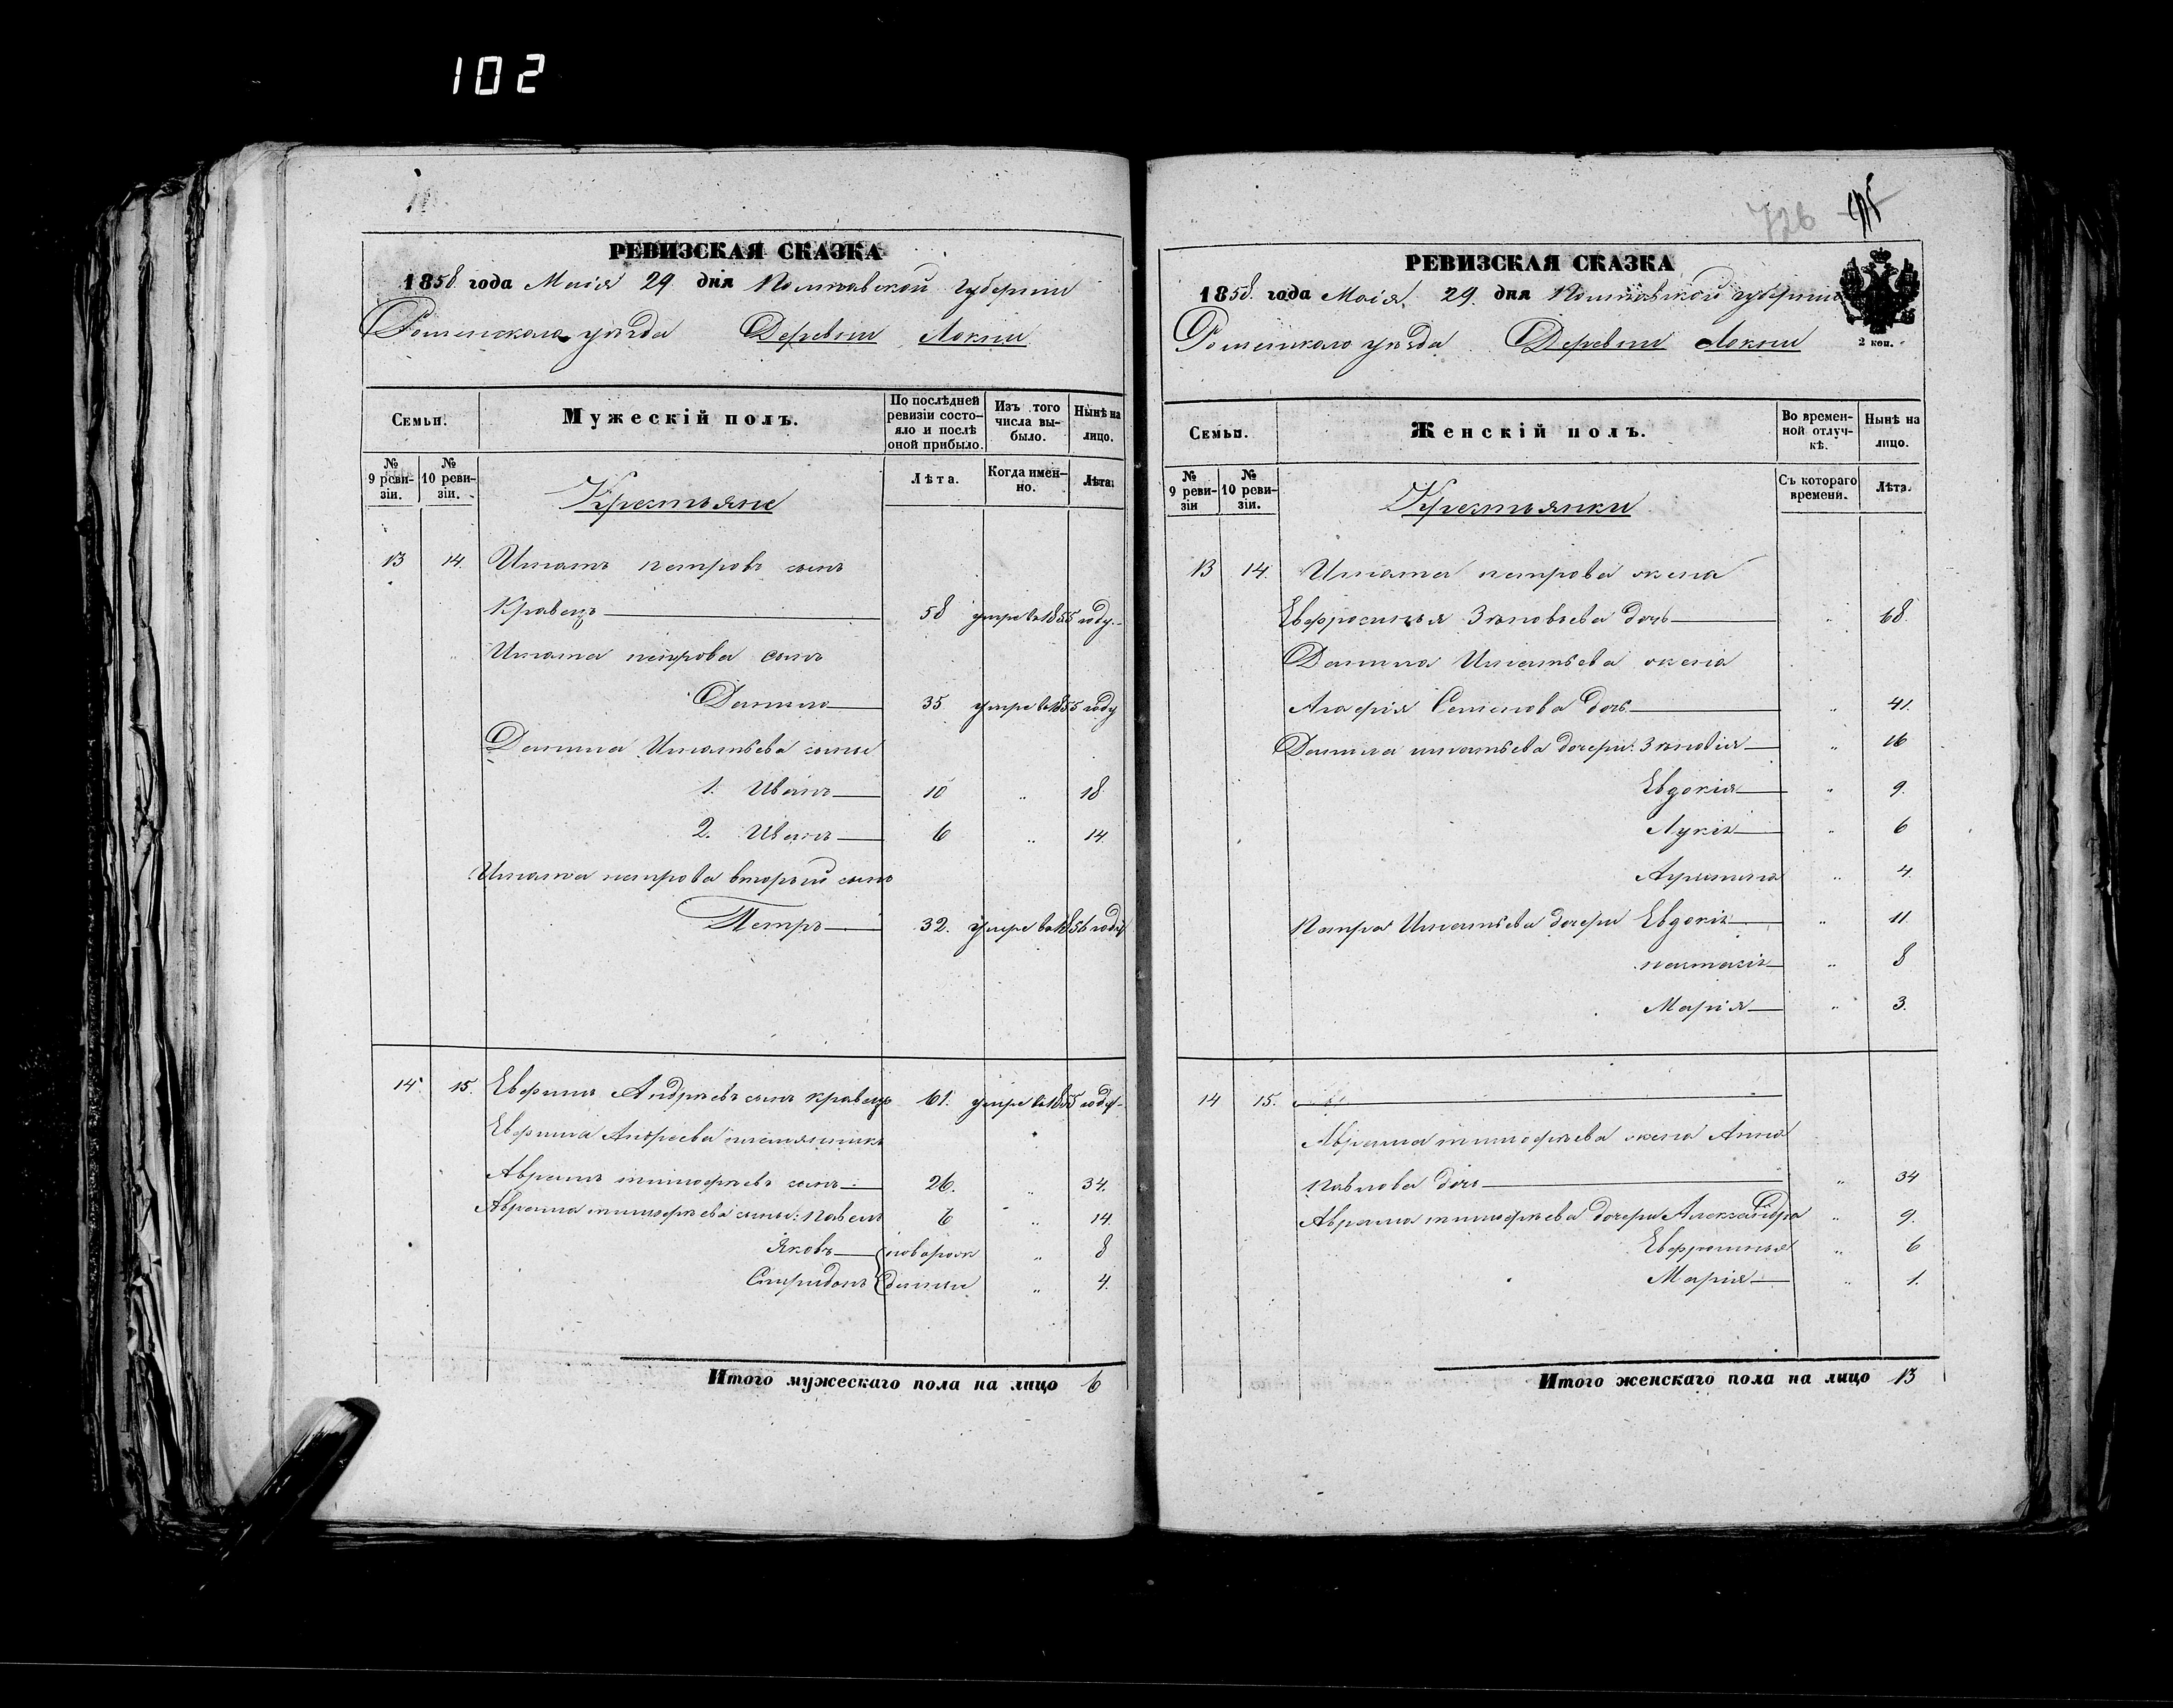 102
726
РЕВИЗСКАЯ СКАЗКА
1858 года Маія 29 дня Полтавской губерніи
Роменскаго уѣзда Деревни Локни
Семьи.
Мужескій полъ.
По послѣдней ревизіи состояло и послѣ оной прибыло.
Изъ того числа выбыло.
Нынѣ на лицо.
№ 9 ревизіи.
№ 10 ревизіи.
Крестьяне
Лѣта.
Когда именно.
Лѣта.
13 14. Игнатъ петровъ сынъ
Кравецъ 58 умре въ 1855 году
Игната петрова сынъ
Данило 35 умре въ 1855 году
Данила Игнатьева сыны
1. Иванъ 10 " 18
2. Иванъ 6 " 14.
Игната петрова вторый сынъ
Петръ 32. умре въ 1856 году
14 15. Евфимъ Андреевъ сынъ кравецъ 61. умре въ 1855 году
Евфима Андреева племянникъ
Аврамъ тимофѣевъ сынъ 26. " 34.
Аврама тимофѣева сыны: павелъ 6 " 14.
Яковъ новорож " 8
Спиридонъ денные " 4.
Итого мужескаго пола на лицо 6
РЕВИЗСКАЯ СКАЗКА
1858 года Маія 29. дня Полтавской губерніи
Роменскаго уѣзда Деревни Локни
2 коп.
Семьи.
Женскій полъ.
Во временной отлучкѣ.
Нынѣ на лицо.
№ 9 ревизіи
№ 10 ревизіи.
Крестьянки
Съ котораго времени.
Лѣта.
13 14. Игната петрова жена
Евфросинья Зѣновьева дочь " 68.
Данила Игнатьева жена
Агафія Семенова дочь " 41.
Данила игнатьева дочери: Зѣновія " 16
Евдокія " 9.
Лукія " 6
" 4.
Петра Игнатьева дочери Евдокія " 11.
" 8
Марія " 3.
14 15.
Аврама тимофѣева жена Анна
Павлова дочь " 34
Аврама тимофѣева дочери Александра " 9.
Евфросинья " 6
Марія " 1.
Итого женскаго пола на лицо 13